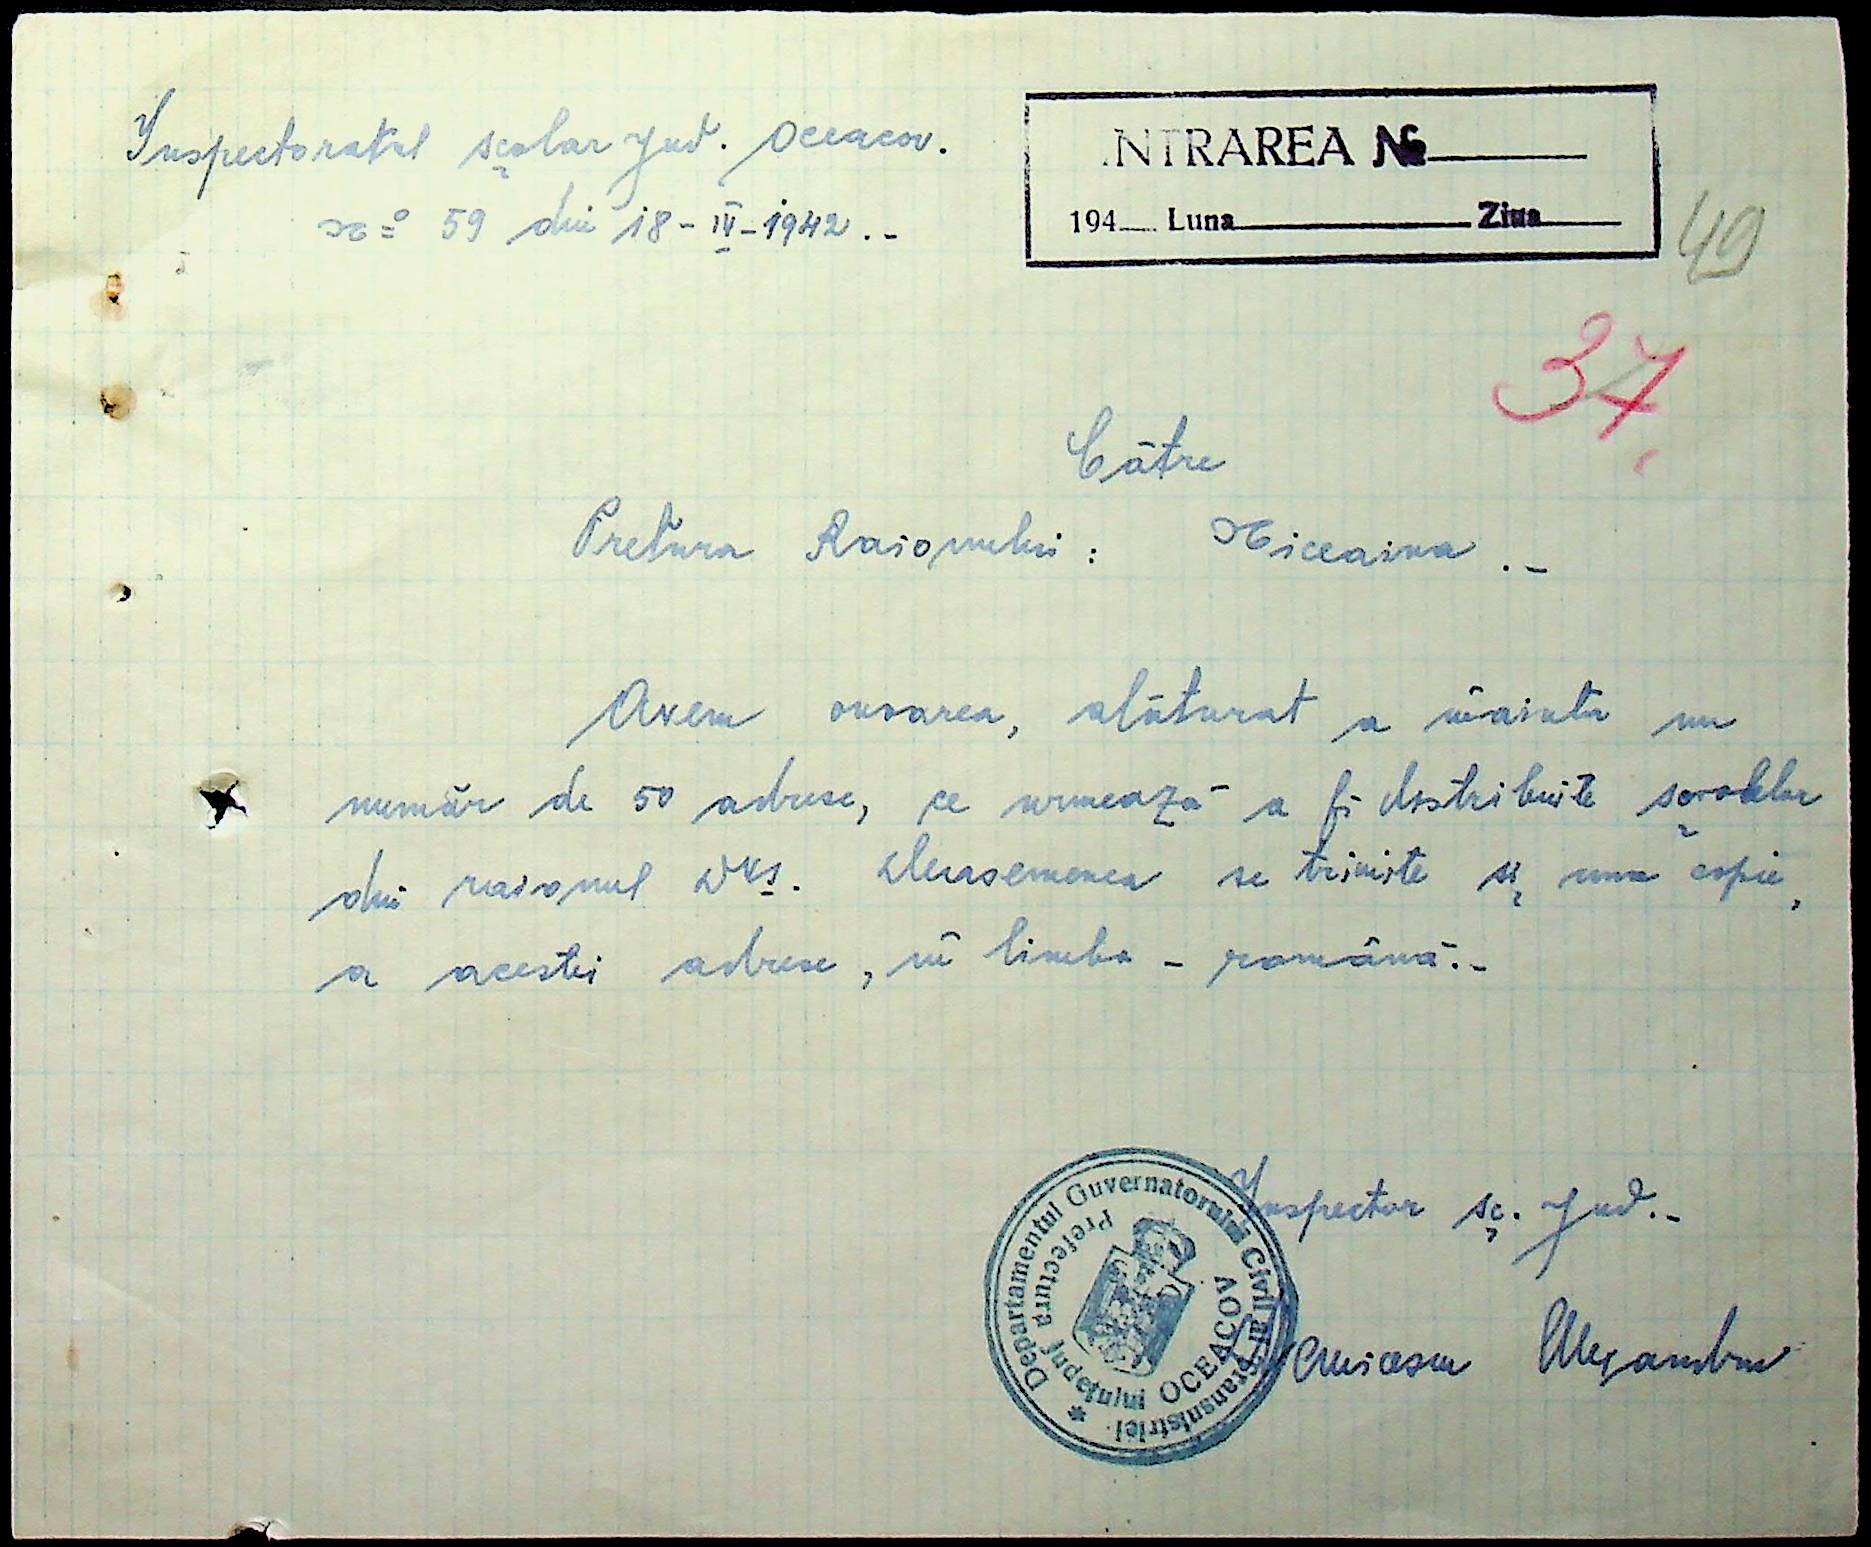 Inspectoratul școlar Jud. Oceacov.
No 59 din 18-IV-1942.-
INTRAREA No
194 Luna Ziua
49
37
Către
Pretura Raionului: Niceaina.-
Avem onoarea, alăturat a înainta un
număr de 50 adrese, ce urmează a fi distribuite școalelor
din raionul Dvs. Deasemenea se trimite și una copie,
a acestei adrese, în limba - română.-
Inspector șc. Jud.-
Alexandru
Departamentul Guvernatorului Civil al Transnistriei
Prefectura Județului OCEACOV